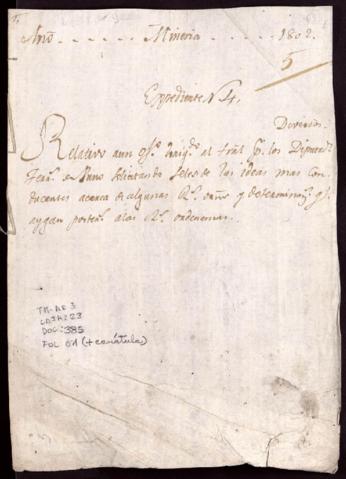 Año - - - - - Mineria - - - - - 1802.
5
Expediente N 4.
Diversos.
Relativo a un of.º dirig.º al tral p.r los Diputad.s
en Puno solicitando seles de las ideas mas con
ducentes acerca de algunas R.s ordñs y determinacio.s q.e
aygan poster.s alas R.s ordenansas.
TM-AE 3
CAJA: 23
DOC: 385
FOL 01 (+ carátula)